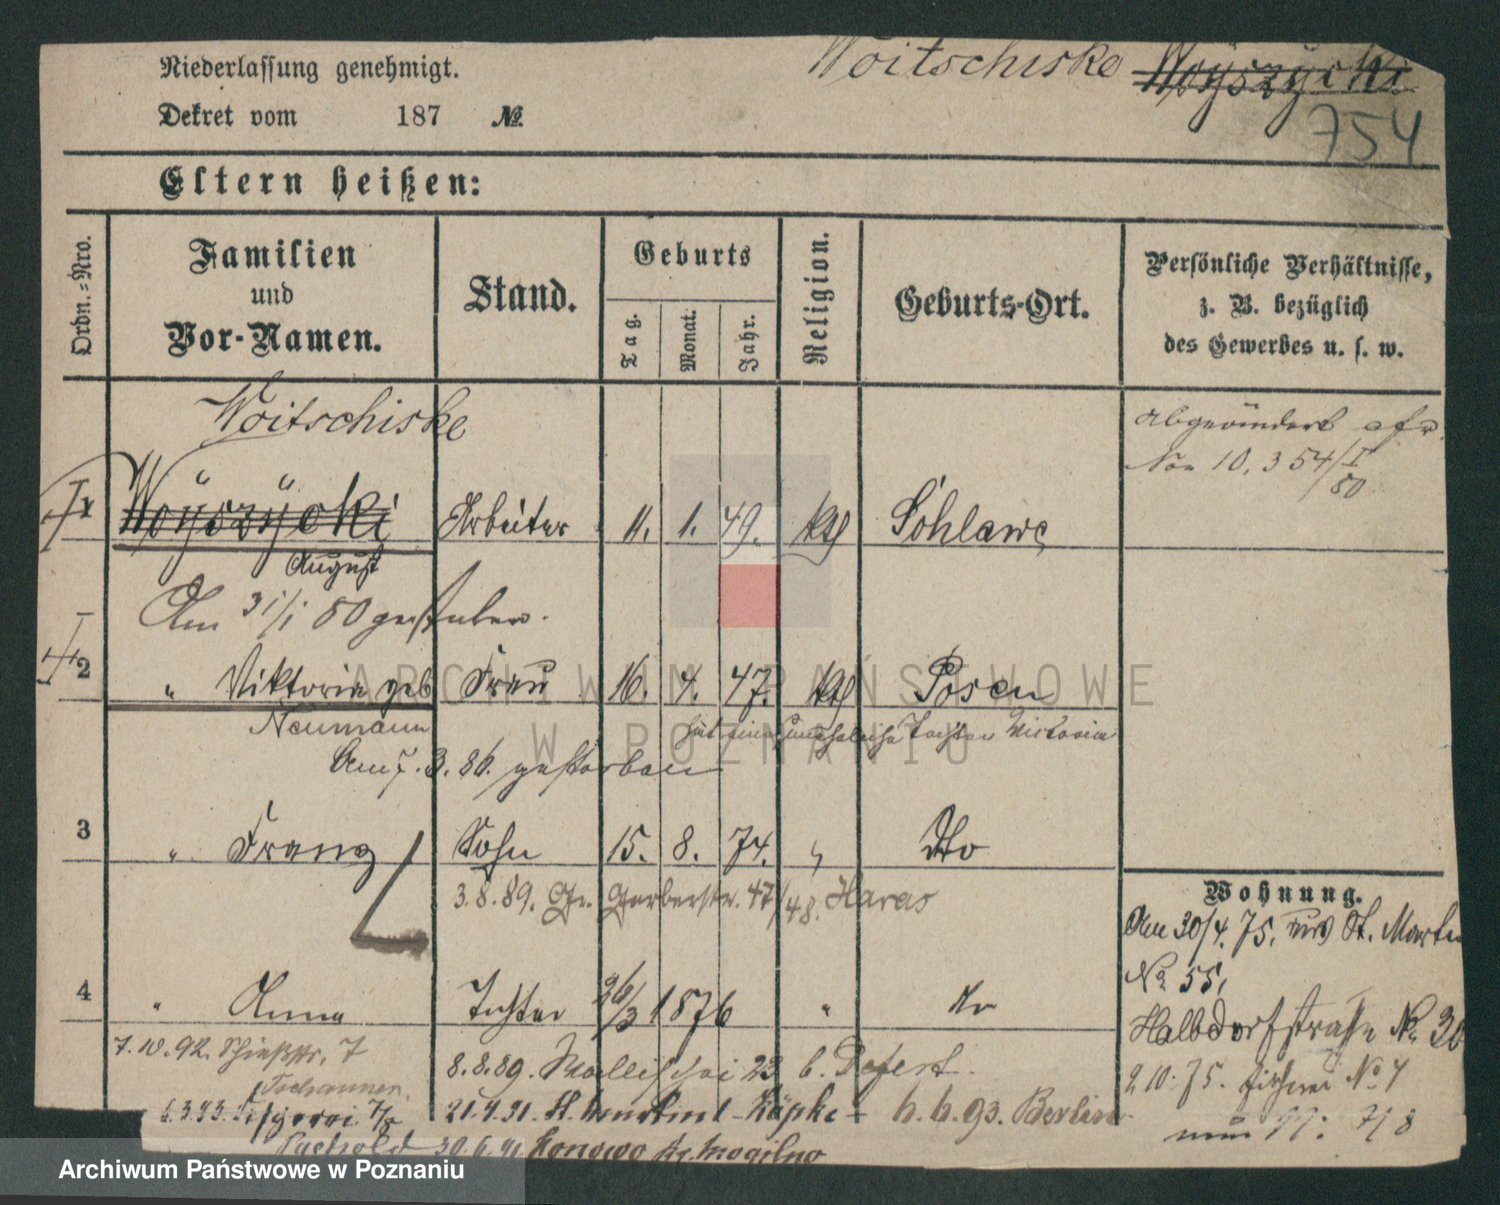 Niederlassung genehmigt.
Dekret vom 187 №
Woitschiske Woÿszÿcki
754
Eltern heißen:
Ordn.=Nro.
Familien
und
Vor-Namen.
Stand.
Geburts
Tag.
Monat.
Jahr.
Religion.
Geburts-Ort.
Persönliche Verhältnisse,
z. B. bezüglich
des Gewerbes u. s. w.
Woitschiske
abgeändert
10, 354/I
80
1 Woÿszÿcki Arbeiter 11. 1. 49. kth
August
Am 31/1 80 gestorben.
2 " Viktoria geb Frau 16. 4. 47. kth Posen
Neumann
Tochter Victoria
Am 7. 3. 86. gestorben
3 " Franz Sohn 15. 8. 74. " Dto
3.8.89. Gr. Gerberstr. 47/48. Haras
4 " Anna Tochter 26/3 1876 " do
Wohnung.
Am 30/4. 75. St. Martin
№ 55,
Halbdorfstrasse № 36
2.10.75. Fischerei № 7
7/8
7.10.92. Schießstr. 7
8.8.89. 23 b.
6.3.93. Fischerei 7/8
21.4.91. 6.6.93. Berlin
30.6.91 Mogilno
ARCHIWUM PAŃSTWOWE
W POZNANIU
Archiwum Państwowe w Poznaniu